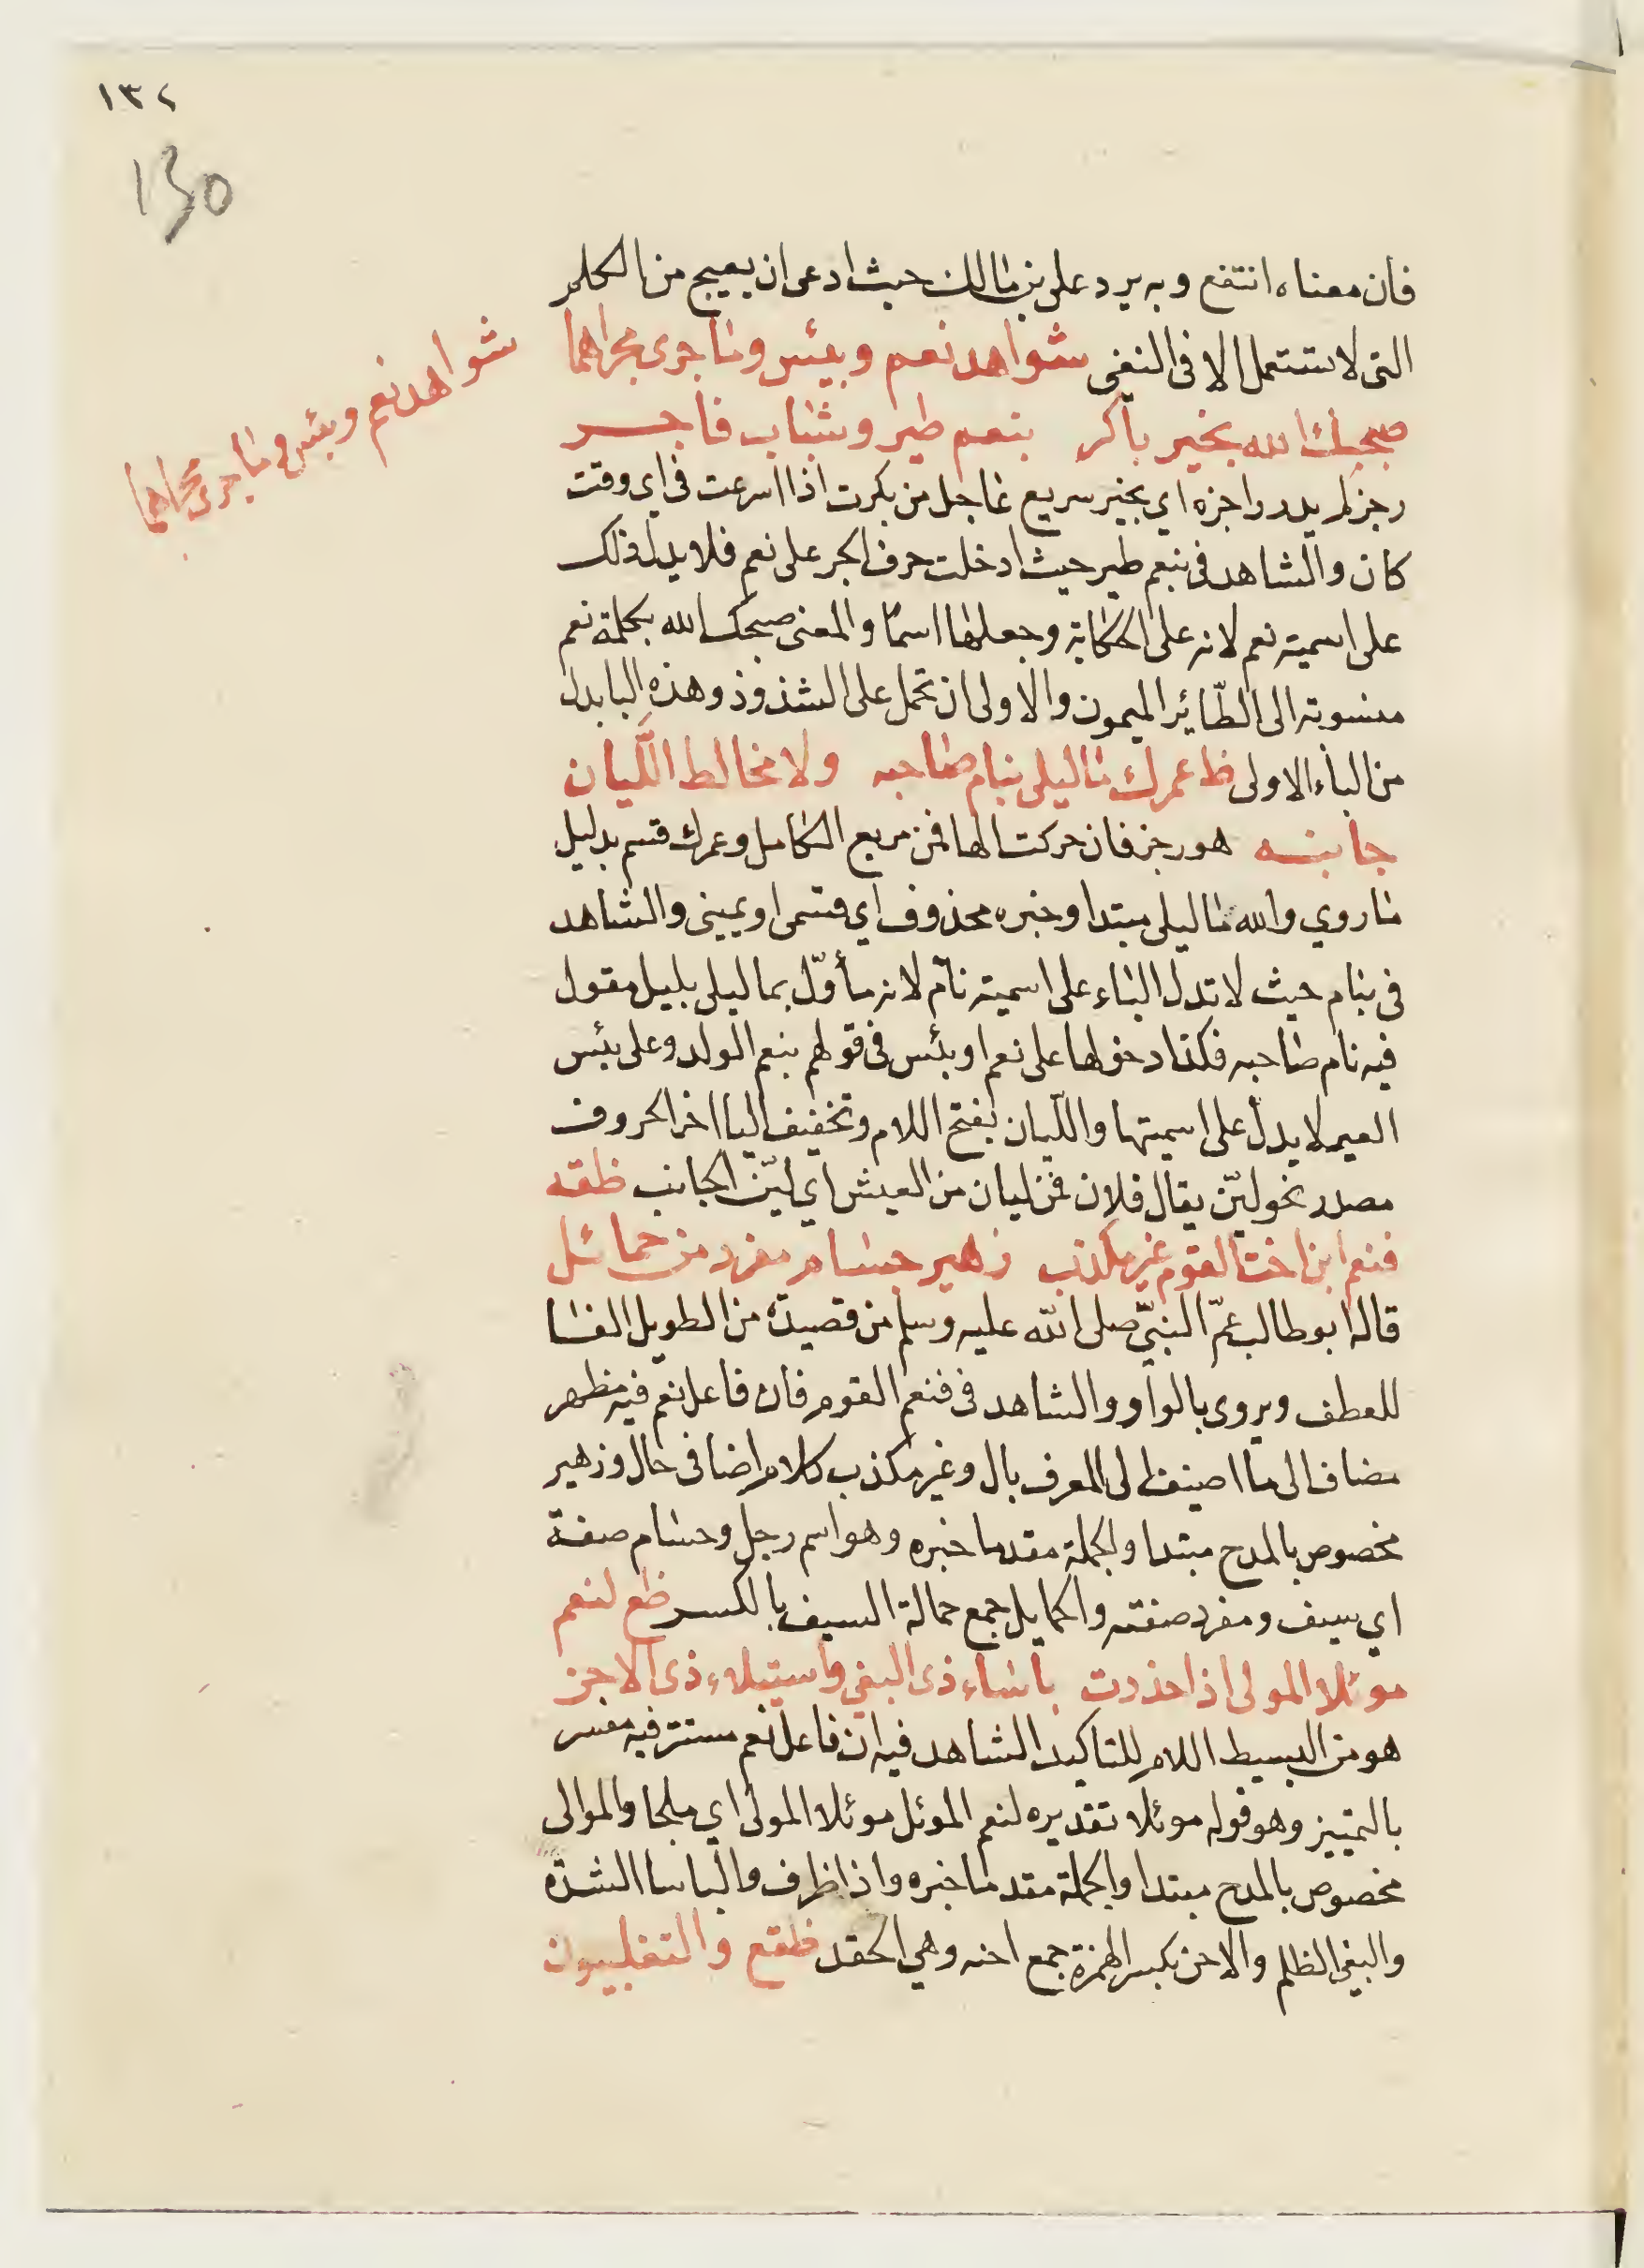 ١٣٢
130
فان معناه انتفع وبه يرد على بن مالك حيث ادعى ان يعيج من الكلم
التى لا تستعمل الا فى النفى شواهد نعم وبئس وما جرى مجراهما
شواهد نعم وبئس وما جرى مجراهما
صبحك الله بخير باكر بنعم طير وشباب فاجر
رجز لم يدر راجزه اي بخير سريع عاجل من بكرت اذا اسرعت فى اي وقت
كان والشاهد فى بنعم طير حيث ادخلت حرف الجر على نعم فلا يدل ذلك
على اسمية نعم لانه على الحكاية وجعلها اسمًا والمعنى صبحك الله بكلمة نعم
منسوبة الى الطّائر الميمون والاولى ان تحمل على الشذوذ وهذه البا بدل
من الباء الاولى ظ عمرك ما ليلى بنام صاحبه ولا مخالط اللَّيان
جانبه هو رجز فان حركت الها فمن مربع الكامل وعمرك قسم بدليل
ما روي والله ما ليلى مبتدا وخبره محذوف اي قسمى او يمينى والشاهد
فى بنام حيث لا تدل الباء على اسمية نام لانه مأوّل بما ليلى بليل مقول
فيه نام صاحبه فكذا دخولها على نعم او بئس فى قولهم بنعم الولد وعلى بئس
العير لا يدل على اسميتها واللّيان بفتح اللام وتخفيف اليا اخر الحروف
مصدر نحو ليّن يقال فلان فى ليان من العيش اي ليّن الجانب ظقه
فنعم ابن اخت القوم غير مكذب زهير حسام مفرد من حمائل
قاله ابو طالب عمّ النبيّ صلى الله عليه وسلم من قصيدة من الطويل الفا
للعطف ويروى بالواو والشاهد فى فنعم القوم فان فاعل نعم فيه مظهر
مضاف الى ما اضيف الى المعرف بال وغير مكذب كلام اضافى حال وزهير
مخصوص بالمدح مبتدا والجملة مقدما خبره وهو اسم رجل وحسام صفة
اي سيف ومفرد صفته والحمايل جمع حمالة السيف بالكسر ظع لنعم
موئلا المولى اذا حذرت باساء ذى البغي واستيلاء ذى الاحن
هو من البسيط اللام للتاكيد الشاهد فيه ان فاعل نعم مستتر فيه مفسر
بالتمييز وهو قوله موئلا تقديره لنعم الموئل موئلا المولى اي ملجا والموالى
مخصوص بالمدح مبتدا والجملة مقدما خبره واذا ظرف والباسا الشدة
والبغي الظلم والاحن بكسر الهمزة جمع احنه وهي الحقد ظقع والتغلبيون